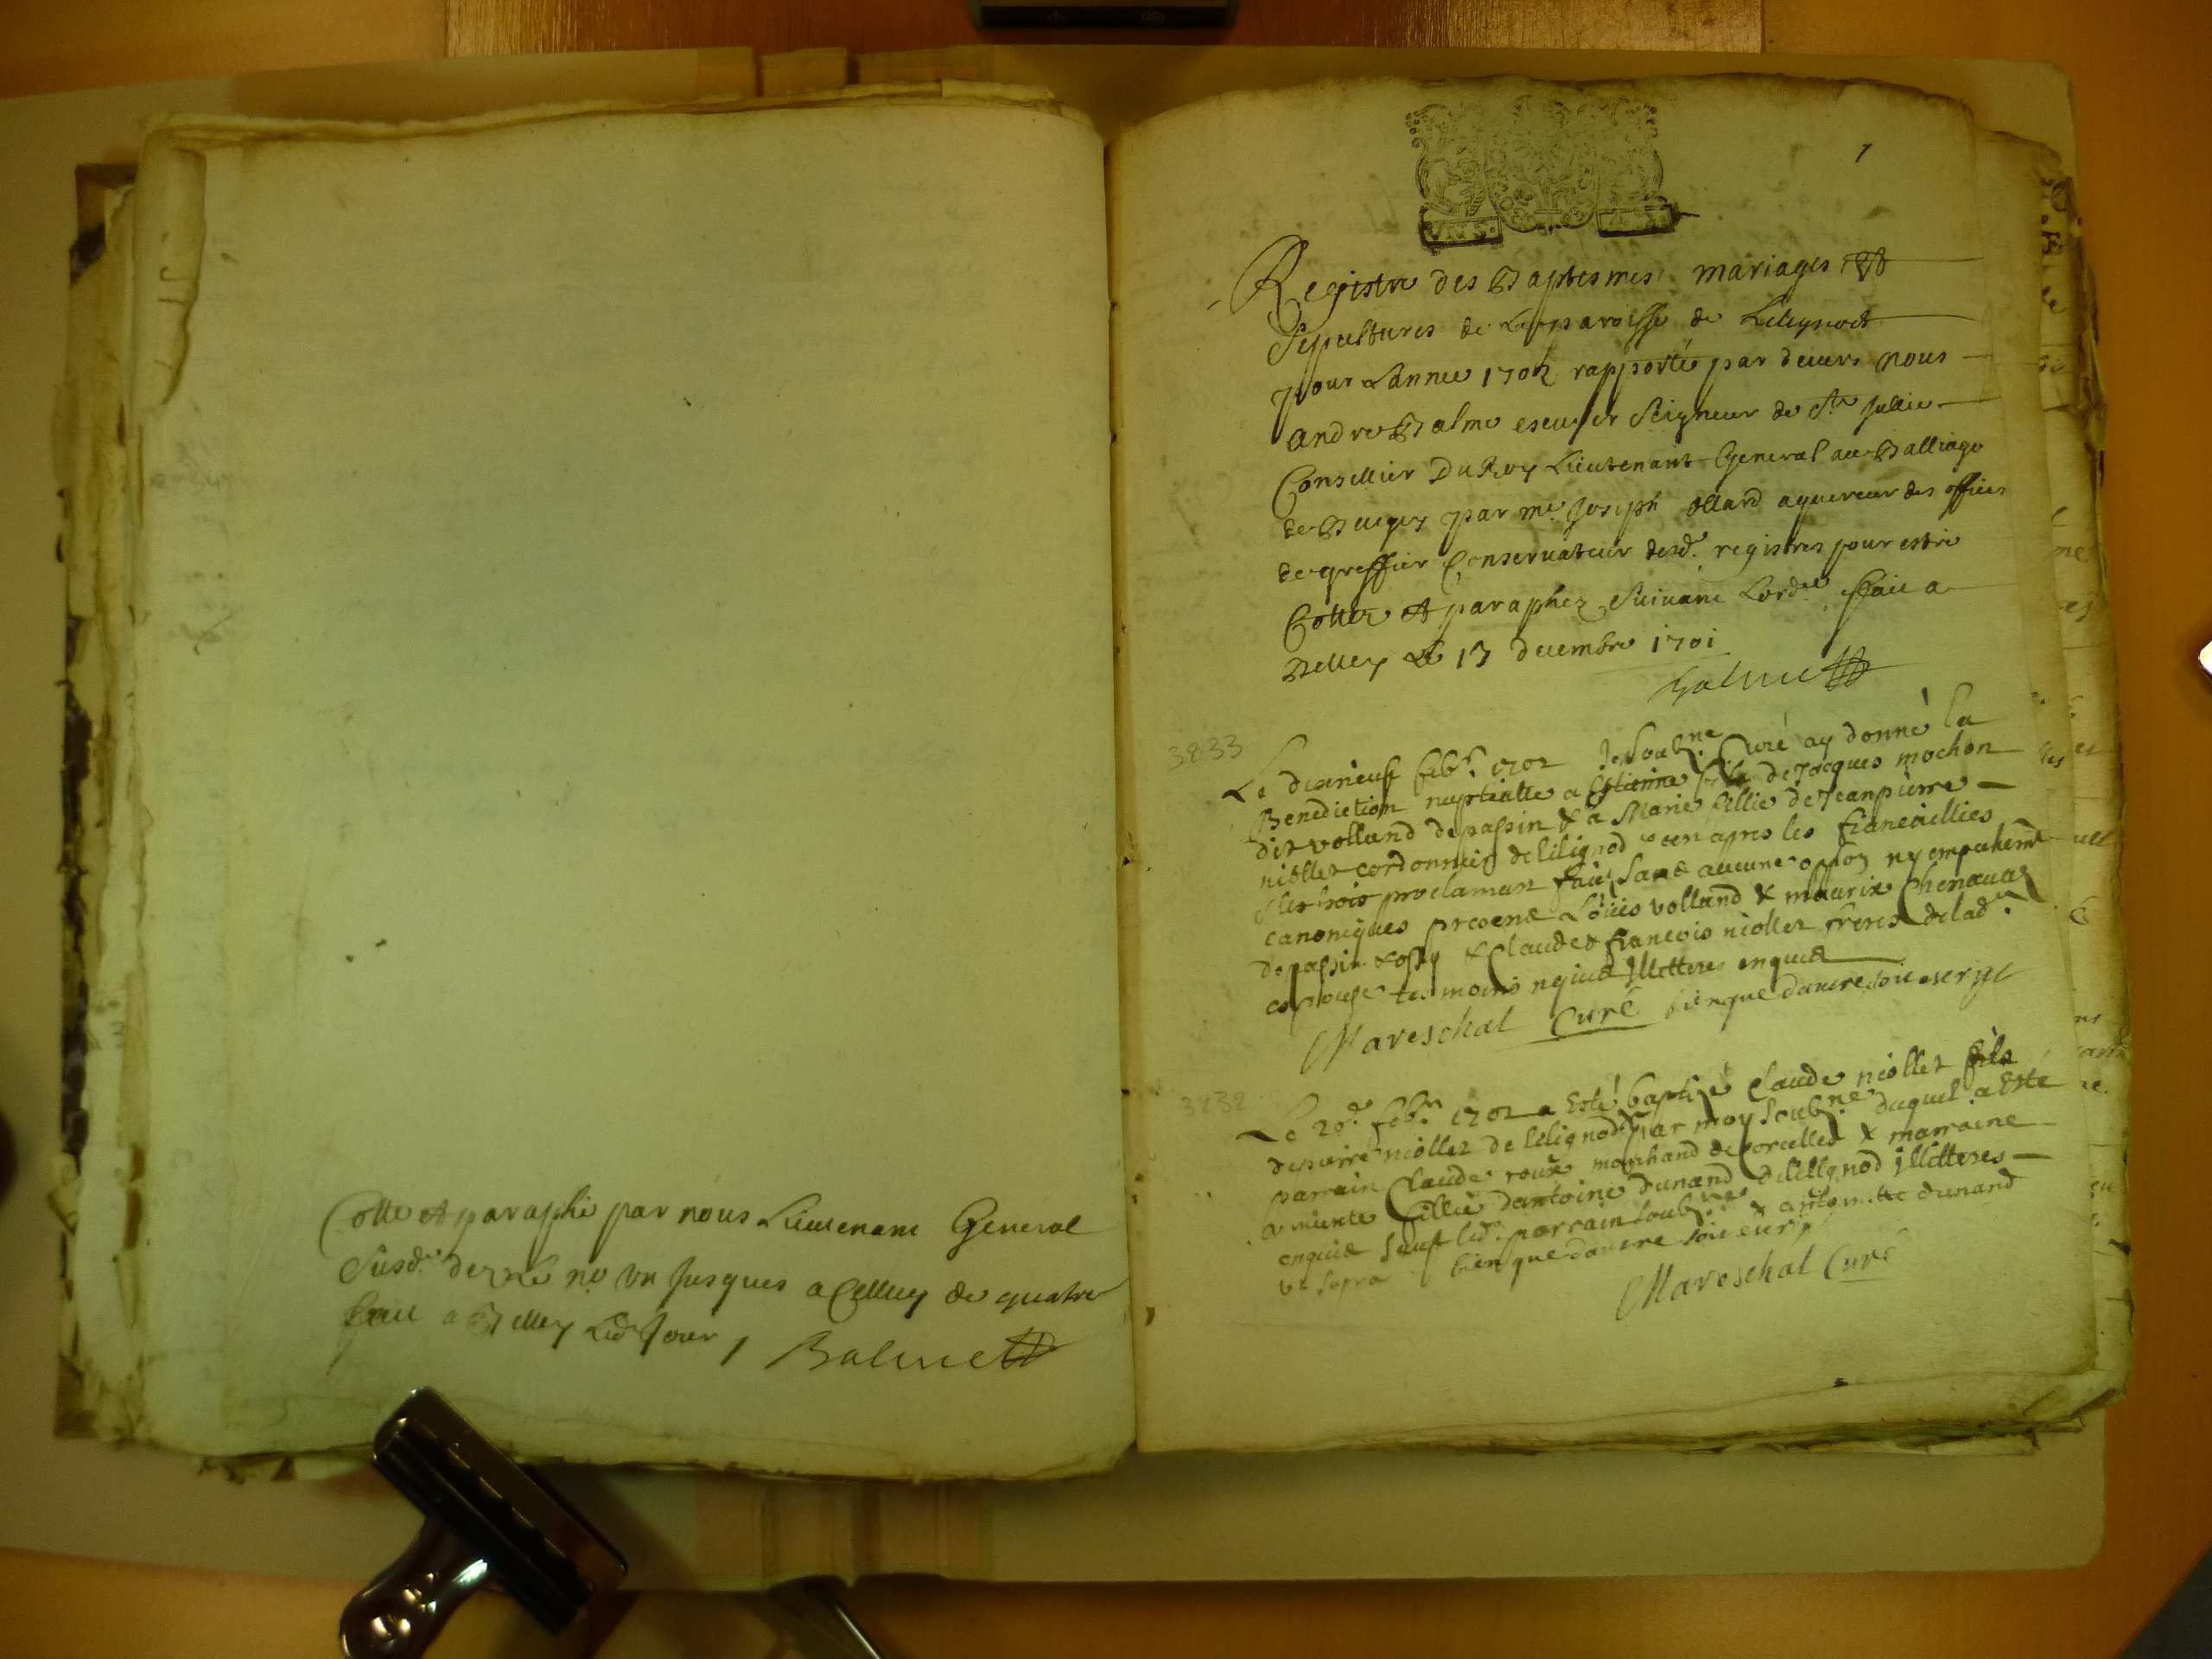 Cotte et paraphé par nous Lieutenant General
Susd. no un Jusques a Celluy de quatre
fait a Belley Led Jour, Balme
1
Registre des Baptesmes mariages et
Sepultures de La paroisse de Lilignod
pour Lannee 1702 rapporté par deuers nous
andre Balme escuyer Seigneur de Ste Jullie
Conseillier Du Roy Lieutenant General au Balliage
de Bugey par me. Joseph ollard aquereur des offices
de greffier Conservateur desd. registres pour estre
Cottez et paraphez Suivant Lordce ffait a
Belley Le 13 decembre 1701
Balme
3833
Le dixneuf febr. 1702 Je soubne Curé ay donné la
Benediction nuptialle a Estienne fils de Jacques mochon
dit volland de passin & a Marie fillie de Jeanpierre
niollet cordonnier de lilignod apres les fiancaillies
& les trois proclamans faits sans aucune oppon ny empechemt
canoniques presens Loüis volland & maurix Chenavaz
de passin & Claude & francois niollet freres de lad.
espouse temoins requis Illitteres enquis
Mareschal Curé bienque dautre soit escrypt
3832
Le 20e. febr. 1702 a Esté baptizé Claude niollet fils
de pierre niollet de lilignod par moy soubne duquel a Esté
parrain Claude roux marchand de & marraine
fillie dantoine dunand de lilignod Illitteres
enquis sauf led. parrain soubne & dunand
ut supra bienque dautre soit escrypt
Mareschal Curé